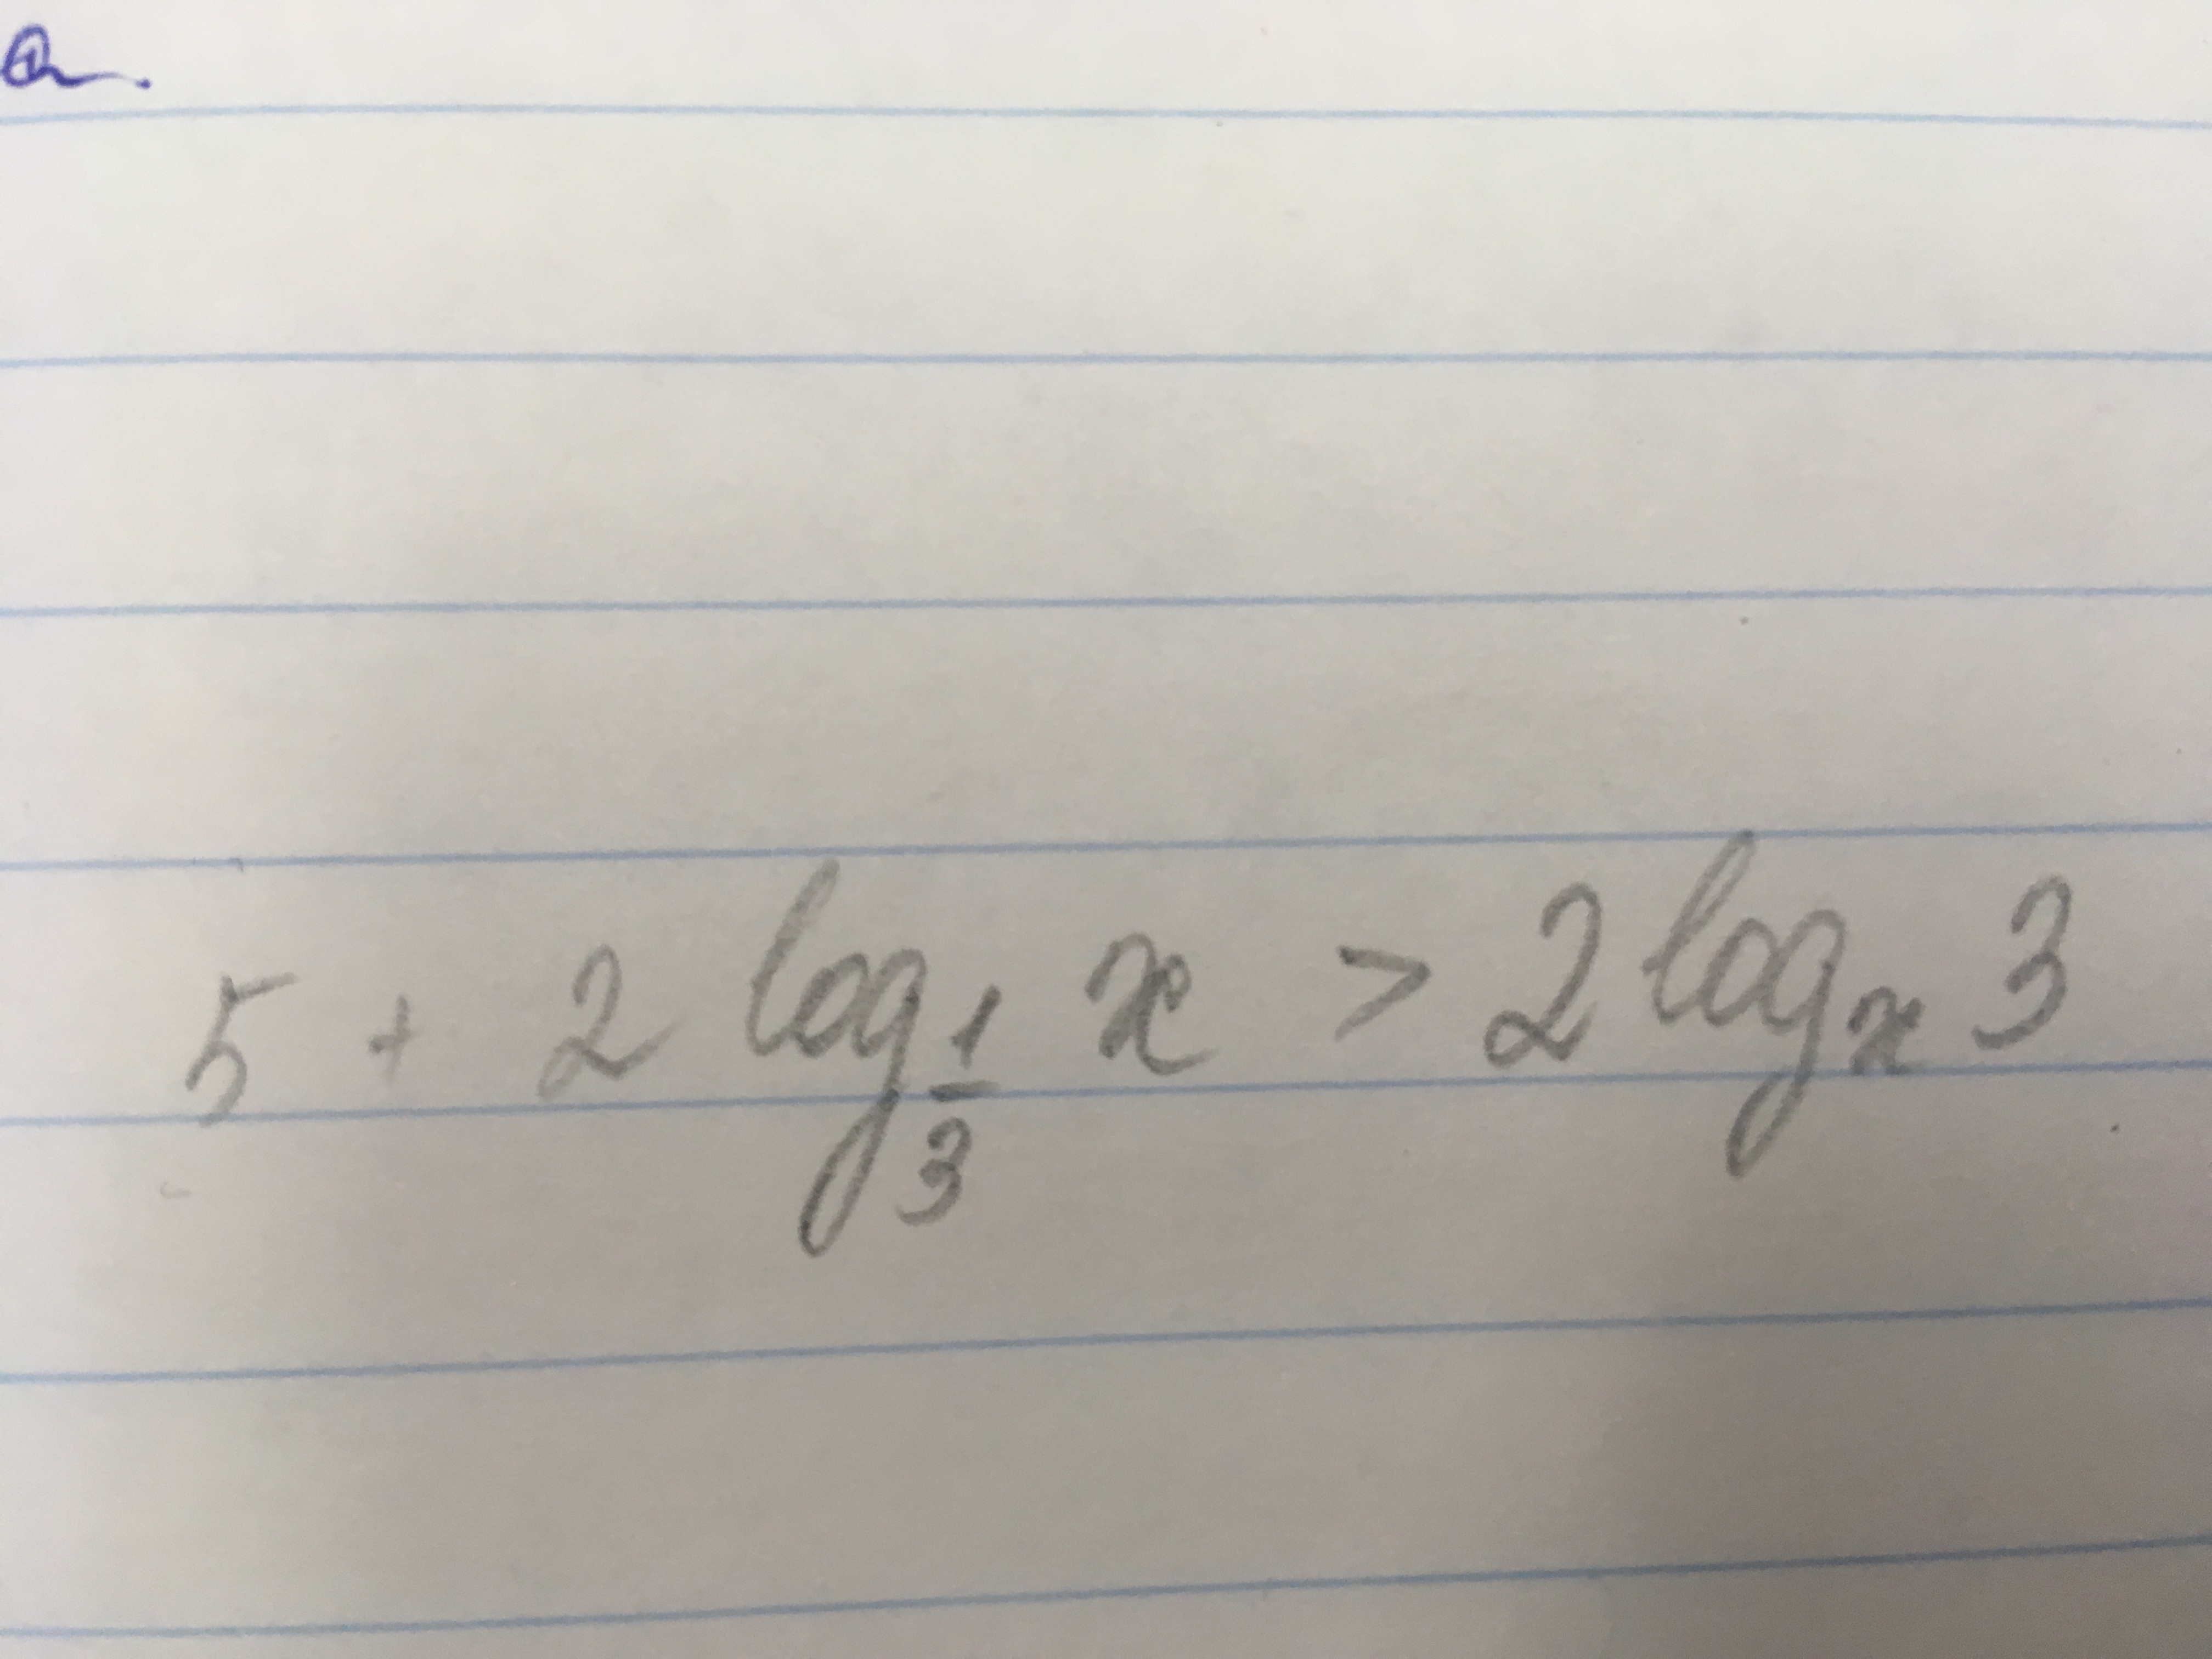 5 + 2 log_{\frac{1}{3}} x > 2 log_x 3